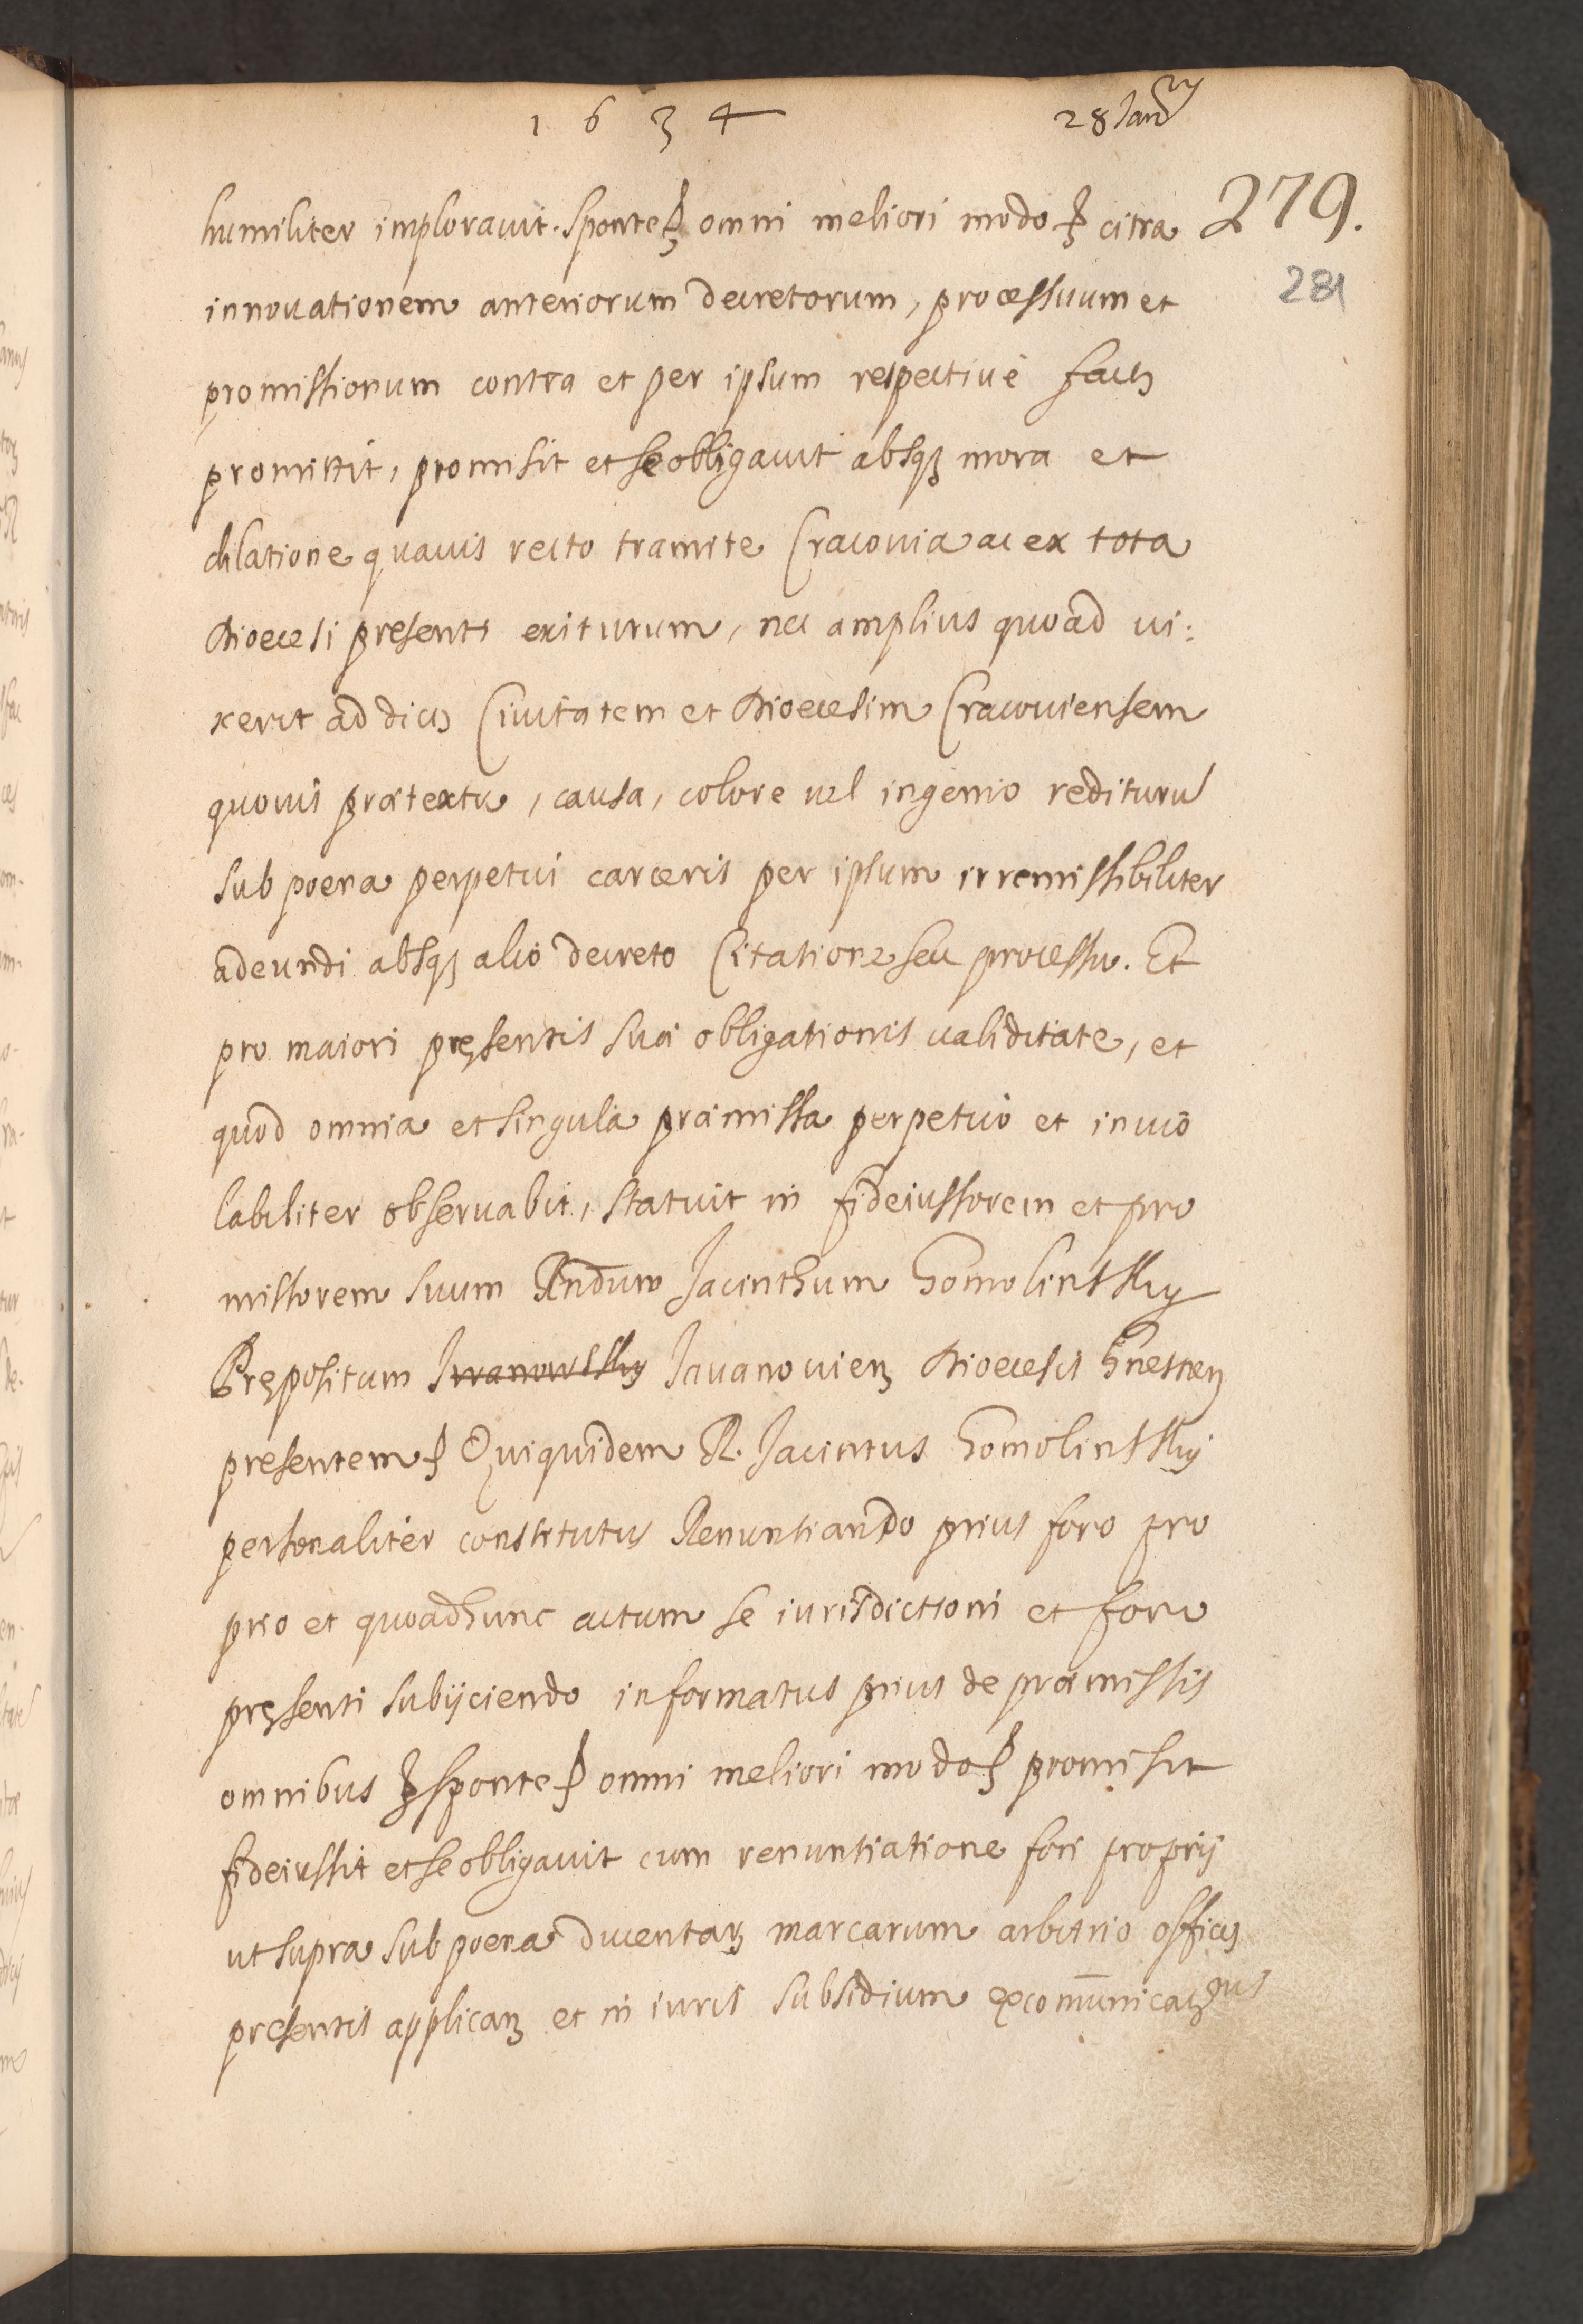 1 6 3 4 28 Ianry
humiliter implorauit. Sponte etc. omni meliori modo etc. citra 279.
innouationem anteriorum decretorum, processuum et 281
promissionum contra et per ipsum respectiuè fact
promittit, promisit et se obligauit absq mora et
dilatione quauis recto tramite Cracouia ac ex tota
Dioecesi presenti exiturum, nec amplius quoad ui:
xerit ad dict Ciuitatem et Dioecesim Cracouiensem
quouis prætextu, causa, colore uel ingenio rediturũ
sub poena perpetui carceris per ipsum irremissibiliter
adeundi absq alio decreto Citatione seu processu. Et
pro maiori pręsentis suæ obligationis ualiditate, et
quod omnia et singula præmissa perpetuò et inuio
labiliter obseruabit, statuit in fideiussorem et pro
missorem suum Rndum Jacinthum Gomolinskÿ
Prępositum Iwanowskÿ Iwanouien Dioecesis Gnesnen
presentem etc. Quiquidem R. Jacintus Gomolinskÿ
personaliter constitutus Renuntiando prius foro pro
prio et quoad hunc actum se iurisdictioni et foro
pręsenti subijciendo informatus prius de præmissis
omnibus etc. sponte etc. omni meliori modo etc. promisit
fideiussit et se obligauit cum renuntiatione fori proprij
ut supra sub poena ducentar marcarum arbitrio officij
presentis applican et in iuris subsidium excom̃unicatnus